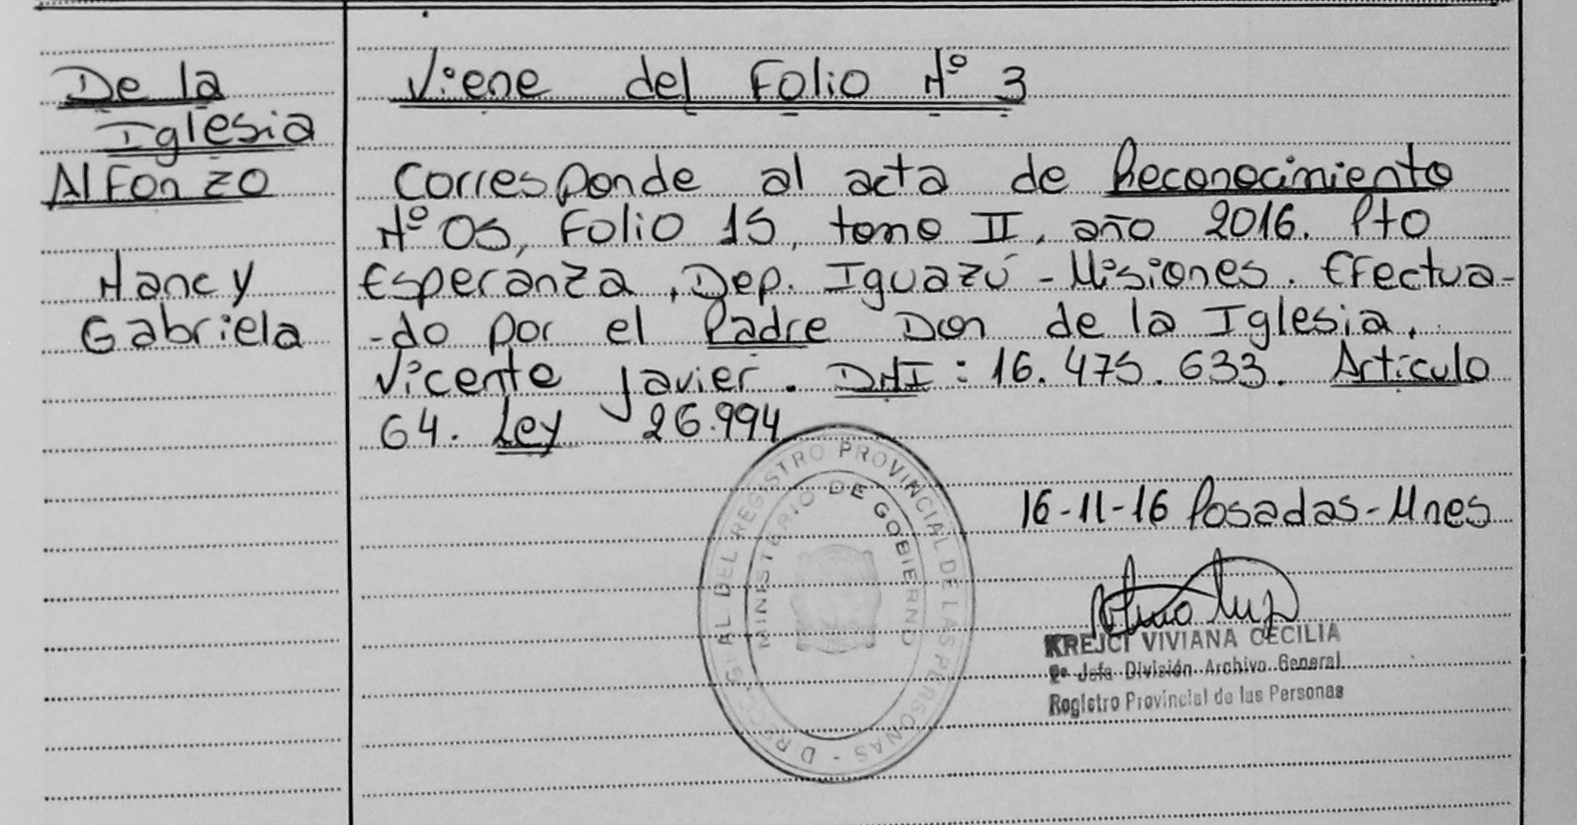 De la
Iglesia
Alfonzo
Nancy
Gabriela
Viene del Folio Nº 3
Corresponde al acta de Reconocimiento
Nº 05, Folio 15, tomo II, año 2016. Pto
Esperanza, Dep. Iguazú - Misiones. Efectua-
-do por el Padre Don de la Iglesia,
Vicente Javier. DNI: 16.475.633. Artículo
64. Ley 26.994
16-11-16 Posadas-Mnes
DIRECC. GRAL DEL REGISTRO PROVINCIAL DE LAS PERSONAS -
MINISTERIO DE GOBIERNO
KREJCI VIVIANA CECILIA
2º Jefa División Archivo General
Registro Provincial de las Personas